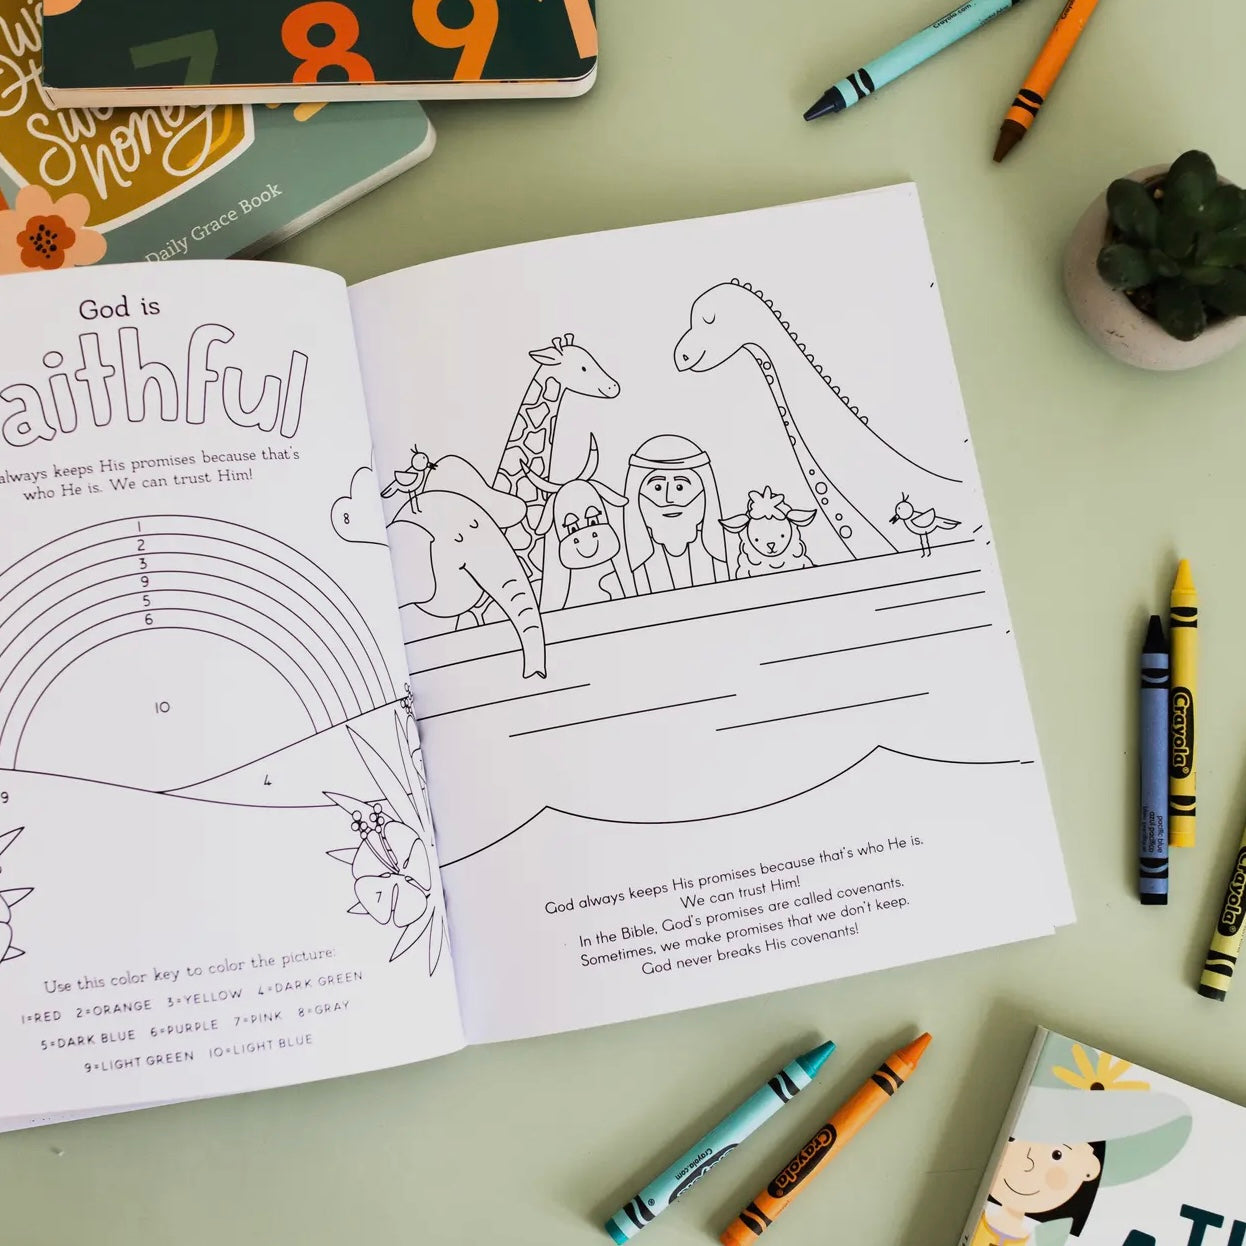 7 8 9
Sweet
honey
Daily Grace Book
Crayola.com
God is
aithful
always keeps His promises because that's
who He is. We can trust Him!
1
2
3
9
5
6
10
8
4
9
7
Use this color key to color the picture:
1=RED 2=ORANGE 3=YELLOW 4=DARK GREEN
5=DARK BLUE 6=PURPLE 7=PINK 8=GRAY
9=LIGHT GREEN 10=LIGHT BLUE
God always keeps His promises because that's who He is.
We can trust Him!
In the Bible, God's promises are called covenants.
Sometimes, we make promises that we don't keep.
God never breaks His covenants!
Crayola
pacific blue
azul pacífico
Crayola
Crayola.com
Crayola